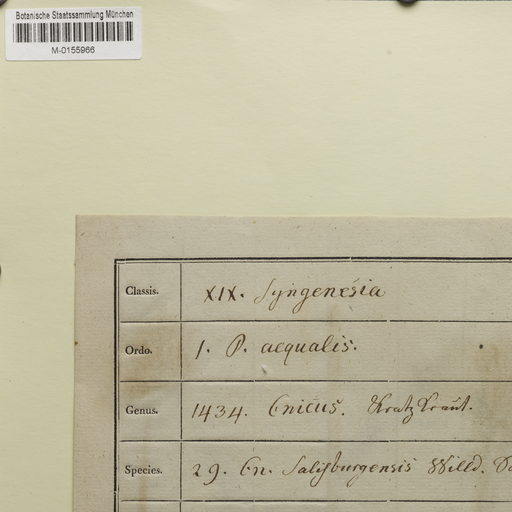 Botanische Staatssammlung München
M-0155966
Classis. XIX. Syngenesia
Ordo. 1. P. aequalis.
Genus. 1434. Cnicus. KratzKraut.
Species. 29. Cn. Salisburgensis Willd.